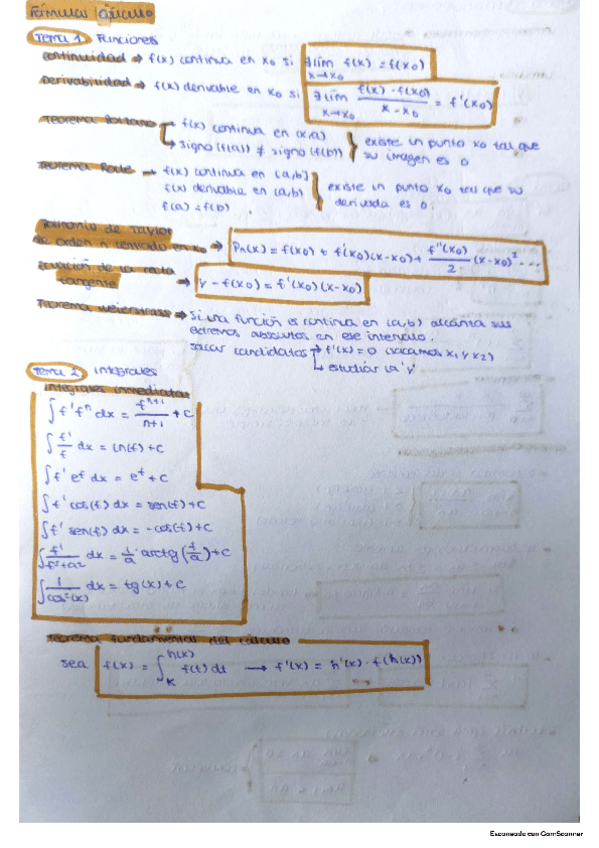 Fórmulas Cálculo
Tema 1. Funciones
continuidad → f(x) continua en x₀ si ∃ lím x→x₀ f(x) = f(x₀)
Derivabilidad → f(x) derivable en x₀ si ∃ lím x→x₀ (f(x) - f(x₀))/(x - x₀) = f'(x₀)
Teorema Bolzano → f(x) continua en (x,a)
↳ signo (f(a)) ≠ signo (f(b)) } existe un punto x₀ tal que su imagen es 0
Teorema Rolle → f(x) continua en [a,b]
f(x) derivable en (a,b)
f(a) = f(b) } existe un punto x₀ tal que su derivada es 0.
Polinomio de Taylor
de orden n centrado en x₀ → Pn(x) = f(x₀) + f'(x₀)(x-x₀) + f''(x₀)/2 (x-x₀)² ...
Ecuación de la recta
tangente → y - f(x₀) = f'(x₀)(x-x₀)
Teorema Weierstrass → Si una función es continua en (a,b) alcanza sus
extremos absolutos en ese intervalo.
sacar candidatos → f'(x) = 0 (sacamos x₁ y x₂)
↳ estudiar la 'y'
Tema 2. Integrales
Integrales inmediatas
∫ f' fⁿ dx = fⁿ⁺¹/(n+1) + C
∫ f'/f dx = ln(f) + C
∫ f' eᶠ dx = eᶠ + C
∫ f' cos(f) dx = sen(f) + C
∫ f' sen(f) dx = -cos(f) + C
∫ f'/(f²+a²) dx = 1/a arctg(f/a) + C
∫ 1/cos²(x) dx = tg(x) + C
Teorema fundamental del cálculo
sea f(x) = ∫ₖʰ⁽ˣ⁾ f(t) dt → f'(x) = h'(x) · f(h(x))
Escaneado con CamScanner